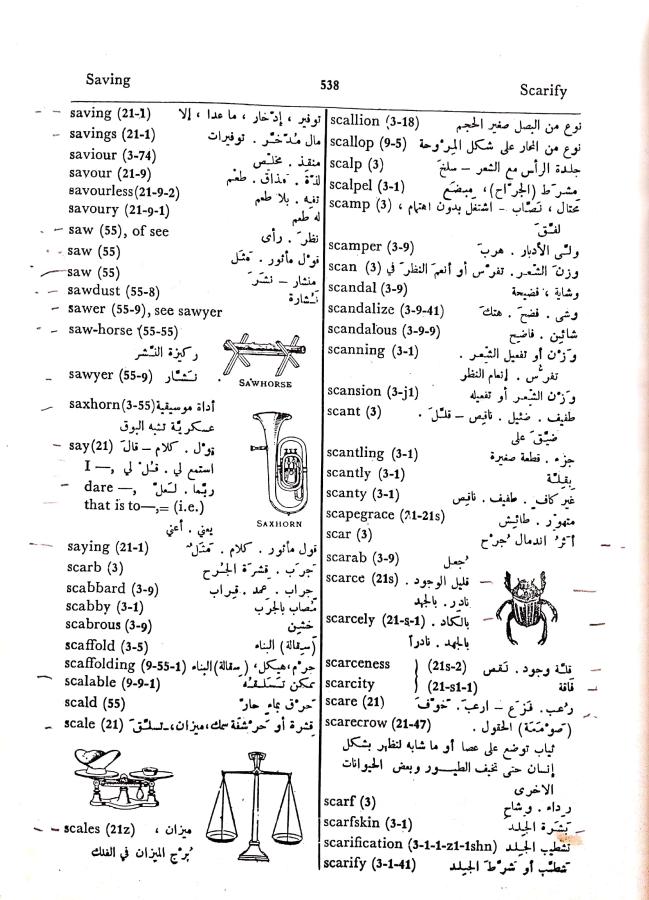 Saving
538
Scarify
saving (21-1) توفير ، إدّخار ، ما عدا ، إلا
savings (21-1) مال مُدّخَّر . توفيرات
saviour (3-74) منقذ . مخلّص
savour (21-9) لذّة . مذاق . طعْم
savourless(21-9-2) تفِه . بلا طعم
savoury (21-9-1) له طعم
saw (55), of see نظرَ . رأى
saw (55) قوْل مأثور . مَثَل
saw (55) منشار – نشَرَ
sawdust (55-8) نُشارة
sawer (55-9), see sawyer
saw-horse (55-55)
ركيزة النَّشر
sawyer (55-9) نَشَّار .
SAWHORSE
saxhorn(3-55) أداة موسيقية
عسكريّة تشبه البوق
say(21) قوْل . كلام – قالَ
I —, استمع لي . قُلْ لي
dare —, ربّما . لعلّ
that is to—,= (i.e.)
يعني . أعني
SAXHORN
saying (21-1) قول مأثور . كلام . مَثَل
scarb (3) جرَب . قِشرة الجُرح
scabbard (3-9) جراب . غمد . قيراب
scabby (3-1) مُصاب بالجرَب
scabrous (3-9) خشين
scaffold (3-5) (سِقالة) البناء
scaffolding (9-55-1) جرم، هيكل، (سِقالة) البناء
scalable (9-9-1) يمكن تَسلّقه
scald (55) حَرق بماء حارّ
scale (21) قشرة أو حَرشَفة سمك، ميزان، – تسلّقَ
scales (21z) ميزان ،
بُرْج الميزان في الفلك
scallion (3-18) نوع من البصل صغير الحجم
scallop (9-5) نوع من المحار على شكل المِرْوحة
scalp (3) جلدة الرأس مع الشعر – سلخَ
scalpel (3-1) مشرَط (الجرّاح)، مِبضَع
scamp (3) محتال ، نصّاب – اشتغلَ بدون اهتمام ،
لفّقَ
scamper (3-9) ولّى الأدبار . هربَ
scan (3) وزنَ الشّعر . تفرّس أو أنعمَ النظَر في
scandal (3-9) وشاية ، فضيحة
scandalize (3-9-41) وشى . فضحَ . هتكَ
scandalous (3-9-9) شائن . فاضيح
scanning (3-1) وَزْن أو تفعيل الشّعر .
تفرّس . إنعام النظر
scansion (3-j1) وَزْن الشّعر أو تفعيله
scant (3) طفيف . ضئيل . ناقص – قلّلَ .
ضيّقَ على
scantling (3-1) جزء . قطعة صغيرة
scantly (3-1) بقِلّة
scanty (3-1) غير كافٍ . طفيف . ناقص
scapegrace (21-21s) متهوّر . طائش
scar (3) أثرُ اندمال جُرْح
scarab (3-9) جُعل
scarce (21s) قليل الوجود .
نادر . بالجهد
scarcely (21-s-1) بالكاد .
بالجهد . نادراً
scarceness (21s-2) قلّة وجود . نقص
scarcity (21-s1-1) فاقة
scare (21) رُعب . فزَع – ارعبَ . خوّفَ
scarecrow (21-47) (صوْمَعَة) الحقول .
ثياب توضع على عصا أو ما شابه لتظهر بشكل
إنسان حتى تخيف الطيور وبعض الحيوانات
الاخرى
scarf (3) رداء . وشاح
scarfskin (3-1) بَشَرة الجلد
scarification (3-1-1-z1-1shn) تشطيب الجلد
scarify (3-1-41) شطّب أو شرّطَ الجلد